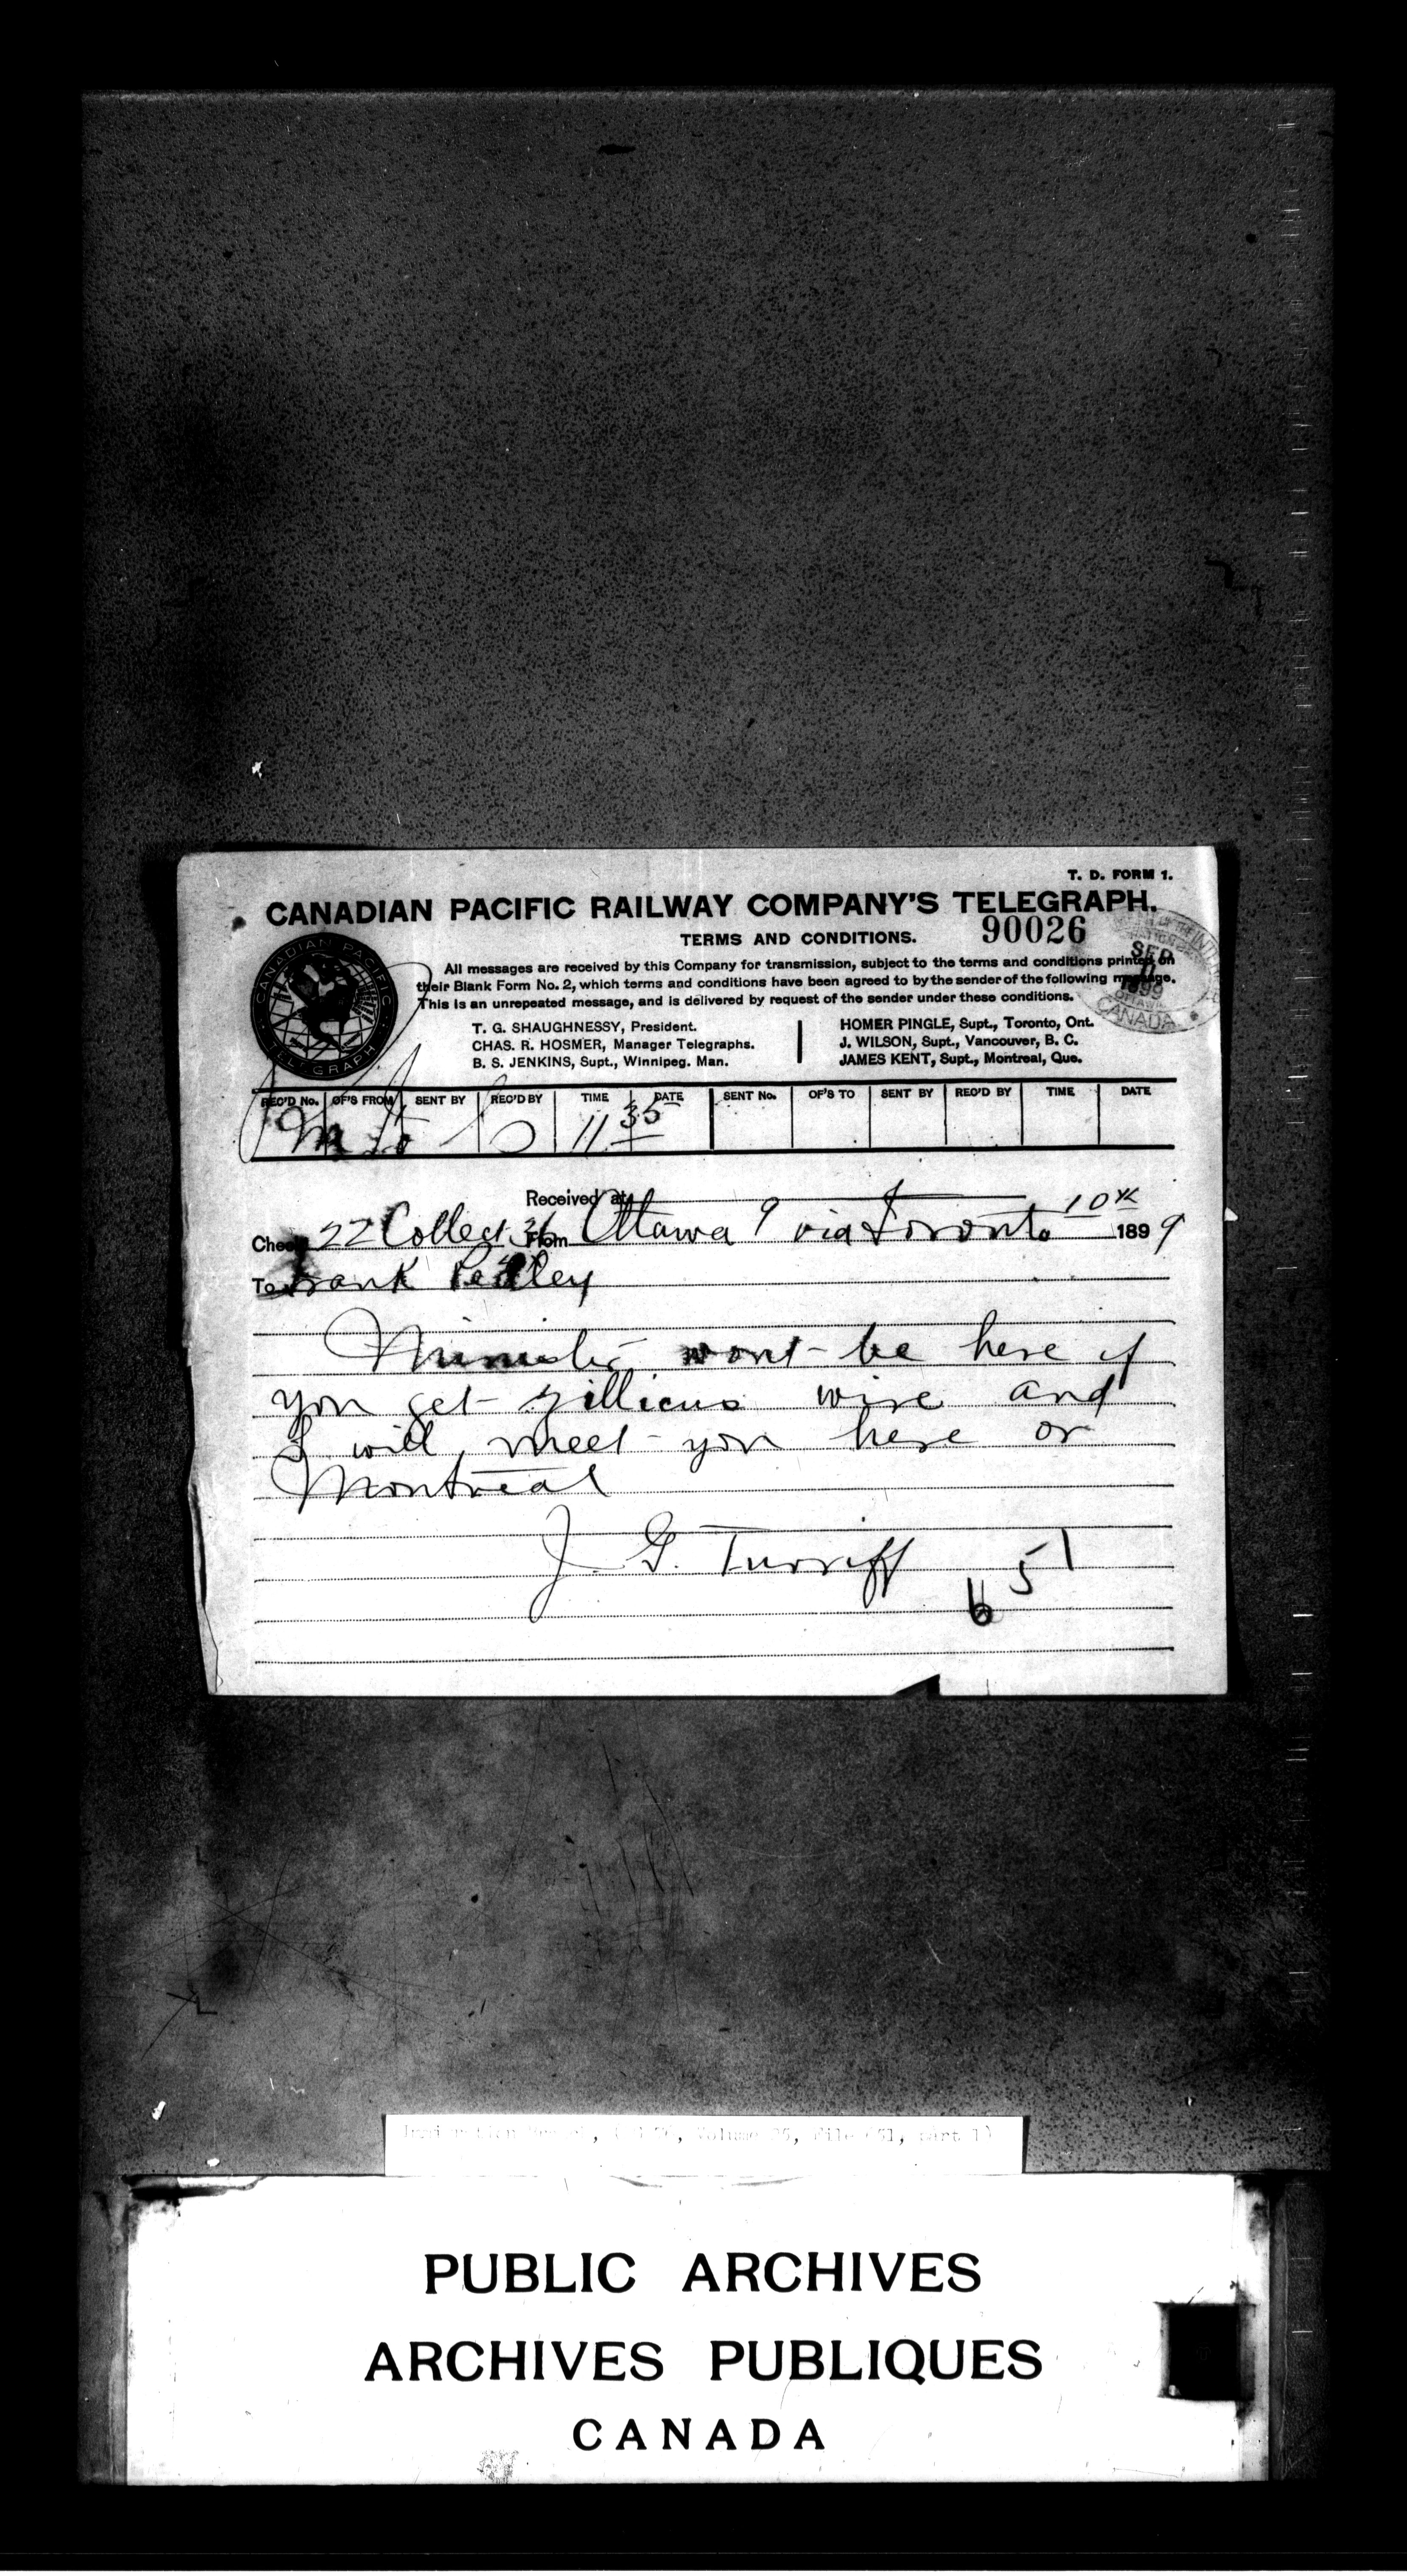 T. D. FORM 1.
CANADIAN PACIFIC RAILWAY COMPANY'S TELEGRAPH.
TERMS AND CONDITIONS. 90026
All messages are received by this Company for transmission, subject to the terms and conditions printed on
their Blank Form No. 2, which terms and conditions have been agreed to by the sender of the following message.
This is an unrepeated message, and is delivered by request of the sender under these conditions.
CANADIAN PACIFIC
TELEGRAPH
SEP
11
1899
OTTAWA
CANADA
T. G. SHAUGHNESSY, President.
CHAS. R. HOSMER, Manager Telegraphs.
B. S. JENKINS, Supt., Winnipeg. Man.
HOMER PINGLE, Supt., Toronto, Ont.
J. WILSON, Supt., Vancouver, B. C.
JAMES KENT, Supt., Montreal, Que.
REC'D No. OF'S FROM SENT BY REC'D BY TIME DATE SENT No. OF'S TO SENT BY REC'D BY TIME DATE
11 35
Received at
10th
Check 22 Collect 36 From Ottawa 9 via Toronto 1899
To Frank Pedley
Minister wont be here if
you get wire and
I will meet you here or
Montreal
J. G. Turriff
651
PUBLIC ARCHIVES
ARCHIVES PUBLIQUES
CANADA